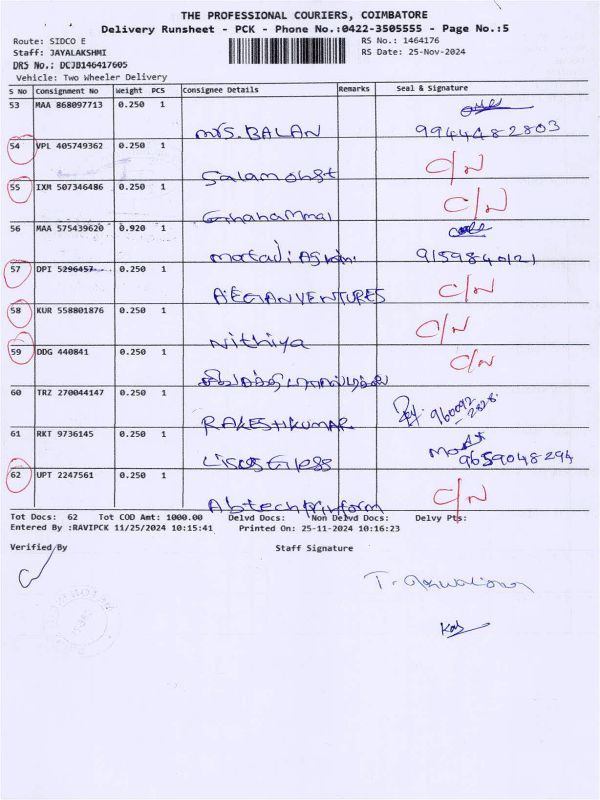 THE PROFESSIONAL COURIERS, COIMBATORE
Delivery Runsheet - PCK - Phone No.:0422-3505555 - Page No.:5
Route: SIDCO E RS No.: 1464176
Staff: JAYALAKSHMI RS Date: 25-Nov-2024
DRS No.: DCJB146417605
Vehicle: Two Wheeler Delivery
S No Consignment No Weight PCS Consignee Details Remarks Seal & Signature
53 MAA 868097713 0.250 1
M/S. BALAN 9944482803
54 VPL 405749362 0.250 1 C/N
55 IXM 507346486 0.250 1 C/N
56 MAA 575439620 0.920 1
9159840121
57 DPI 5296457 0.250 1 C/N
AEGIANVENTURES
58 KUR 558801876 0.250 1 C/N
Nithiya
59 DDG 440841 0.250 1 C/N
60 TRZ 270044147 0.250 1
RAKESHKUMAR
61 RKT 9736145 0.250 1
9659048294
62 UPT 2247561 0.250 1 C/N
Abtechprinform
Tot Docs: 62 Tot COD Amt: 1000.00 Delvd Docs: Non Delvd Docs: Delvy Pts:
Entered By :RAVIPCK 11/25/2024 10:15:41 Printed On: 25-11-2024 10:16:23
Verified By Staff Signature